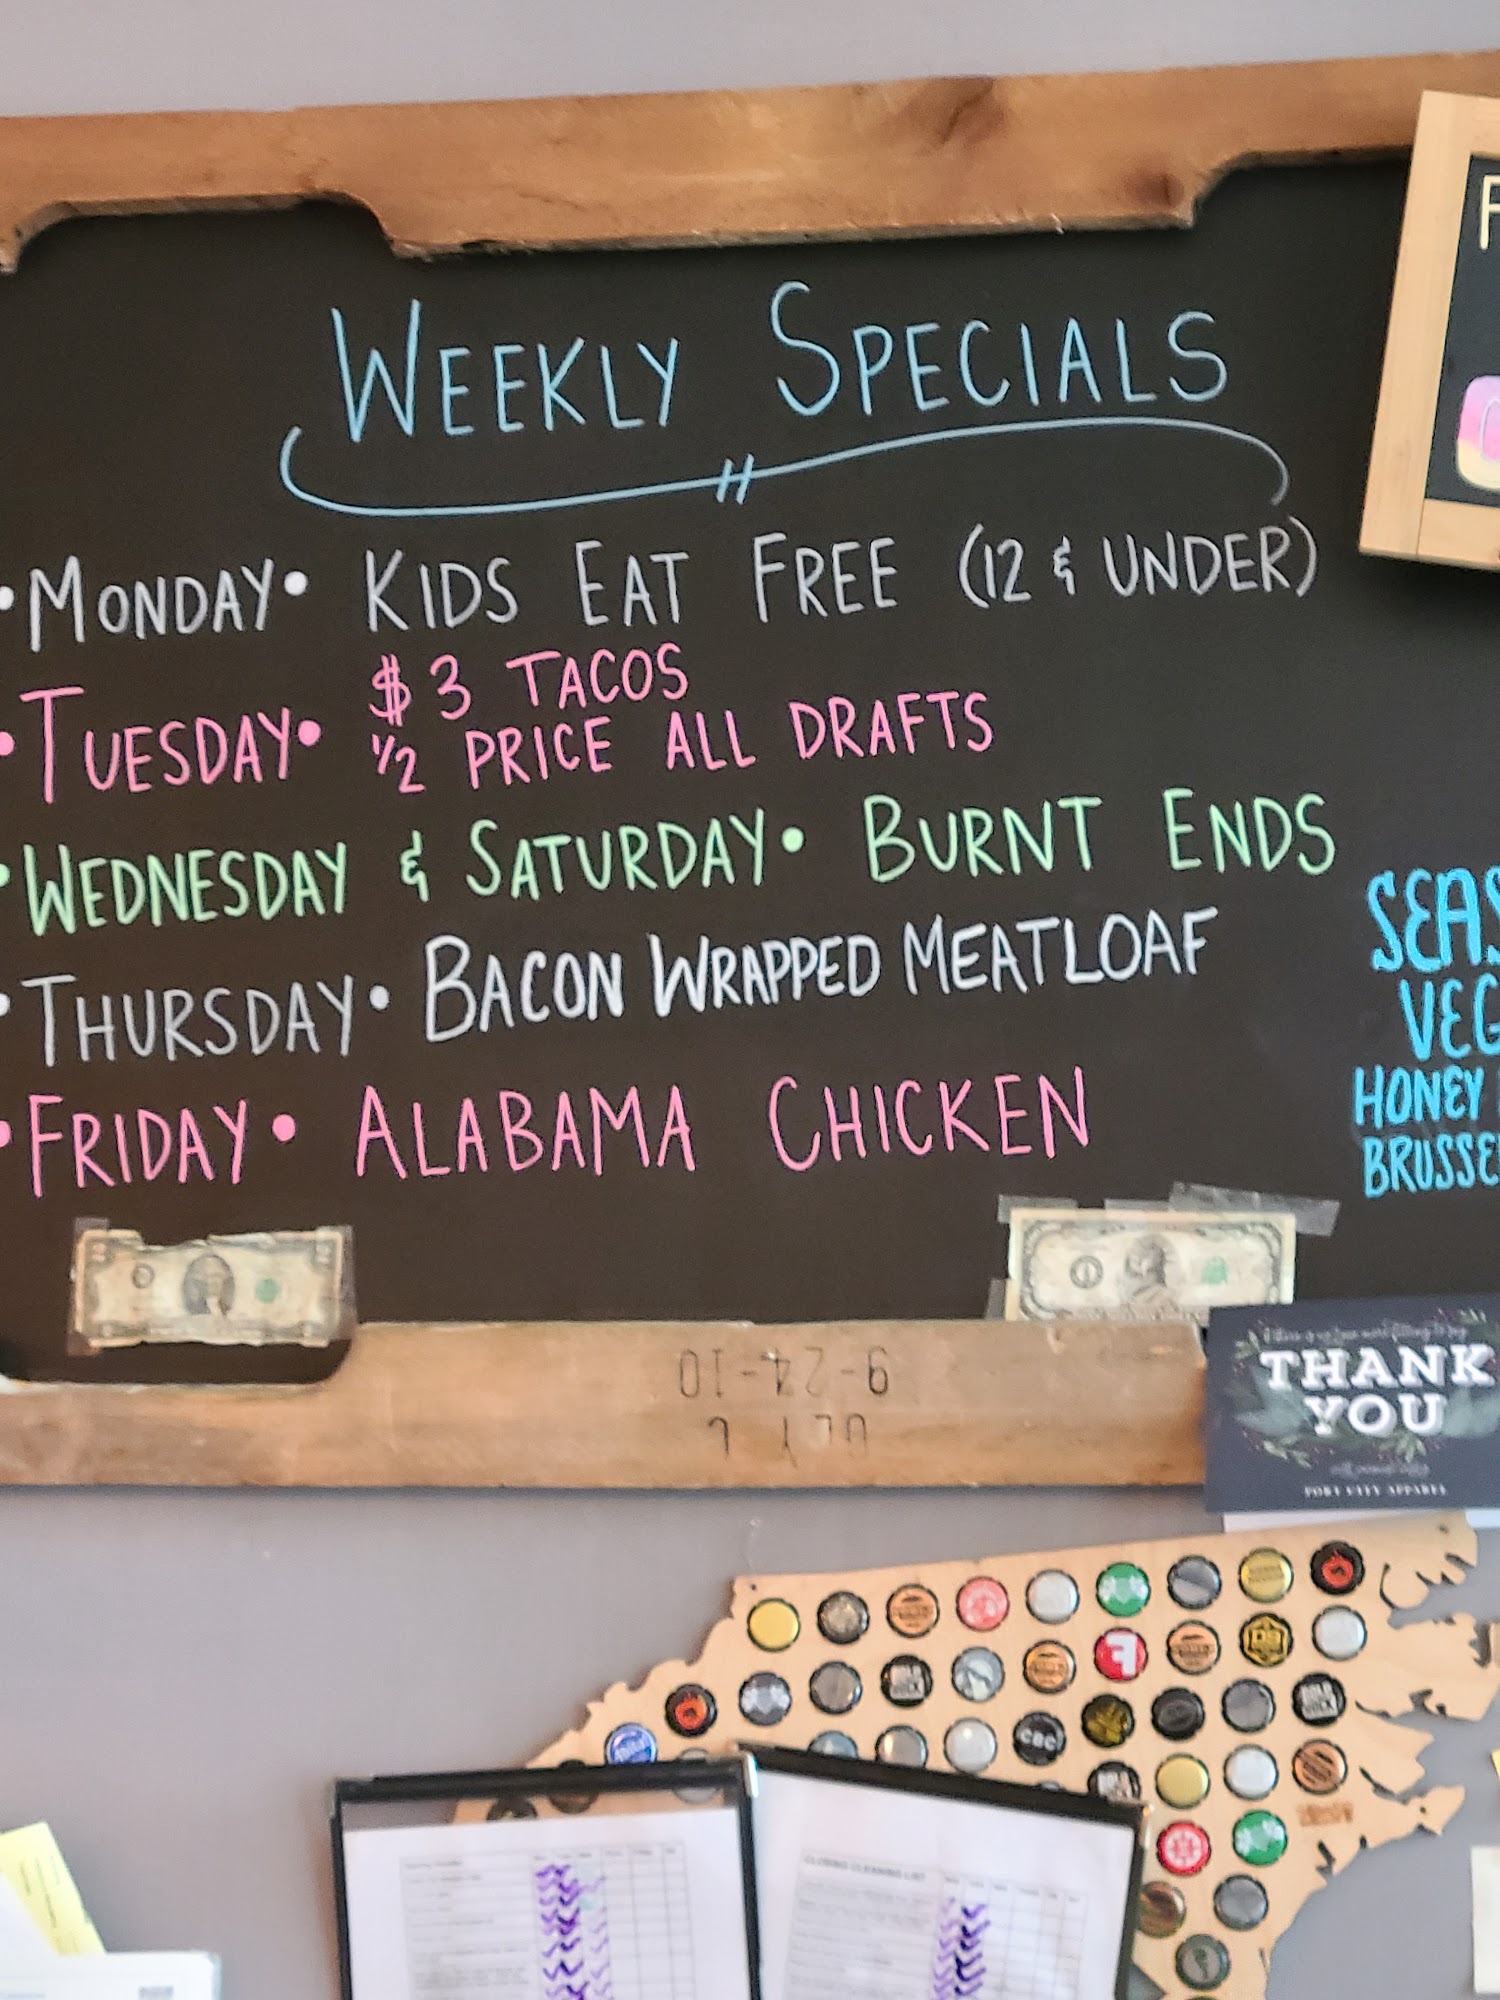 WEEKLY SPECIALS
•MONDAY• KIDS EAT FREE (12 & UNDER)
•TUESDAY• $3 TACOS
1/2 PRICE ALL DRAFTS
•WEDNESDAY & SATURDAY• BURNT ENDS
•THURSDAY• BACON WRAPPED MEATLOAF
•FRIDAY• ALABAMA CHICKEN
SEAS
VEG
HONEY
BRUSSE
9-24-10
THANK
YOU
PORT CITY APPAREL
CLOSING CLEANING LIST
CBC
F